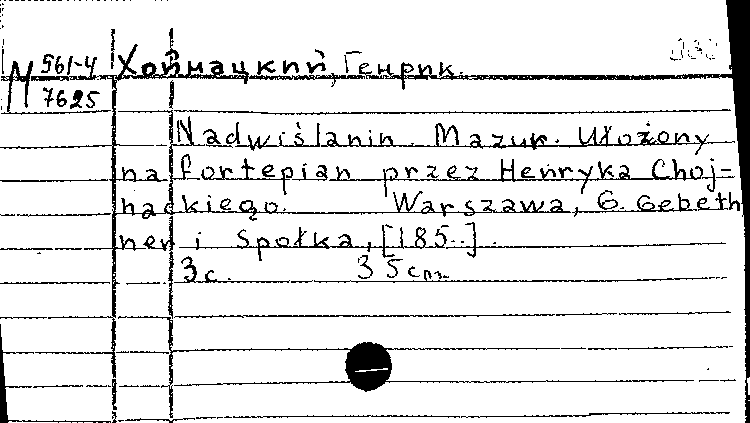 М 561-4
7625
Хойнацкий, Генрик.
Nadwiślanin. Mazur. Ułożony
na fortepian przez Henryka Choj-
nackiego. Warszawa, G. Gebeth
ner i Społka, [185..].
3с. 35см.